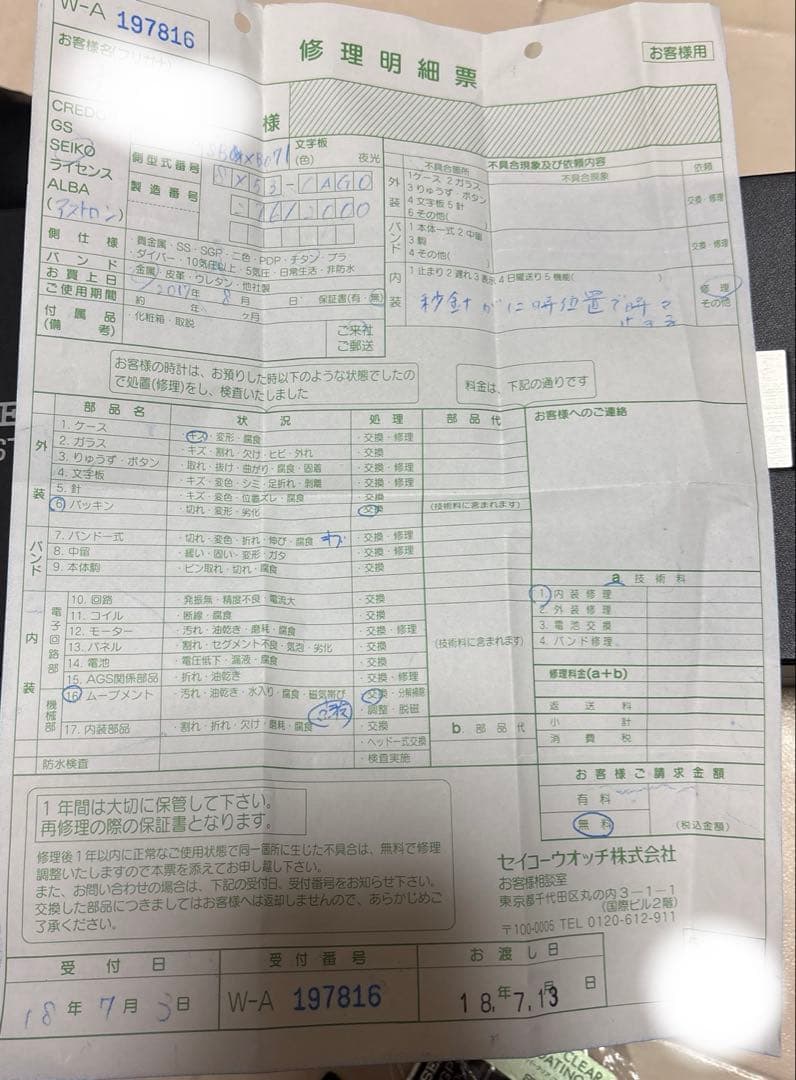 W-A 197816
修理明細票
お客様用
お客様名(フリガナ)
様
CREDOR
GS
SEIKO
ライセンス
ALBA
(アストロン)
文字板
(色)
夜光
側型式番号
8X53-
製造番号
側仕様
・貴金属・SS・SGP・二色・PDP・チタン・プラ
・ダイバー・10気圧以上・5気圧・日常生活・非防水
バンド
・金属・皮革・ウレタン・他社製
お買上日
2017年 8月 日 保証書(有・無)
ご使用期間
約 年 ヶ月
付属品
(備考)
・化粧箱・取説
ご来社
ご郵送
不具合現象及び依頼内容
不具合箇所
不具合現象
依頼
外装
1ケース 2ガラス
3りゅうず・ボタン
4文字板 5針
6その他(
交換・修理
バンド
1本体一式 2中留
3駒
4その他(
交換・修理
内装
1止まり 2遅れ 3表示 4日曜送り 5機能( )
修理
その他
秒針が 位置で時々
お客様の時計は、お預りした時以下のような状態でしたの
で処置(修理)をし、検査いたしました
料金は、下記の通りです
部品名
状況
処理
部品代
お客様へのご連絡
外装
1. ケース ・キズ・変形・腐食 ・交換・修理
2. ガラス ・キズ・割れ・欠け・ヒビ・外れ ・交換
3. りゅうず・ボタン ・取れ・抜け・曲がり・腐食・固着 ・交換・修理
4. 文字板 ・キズ・変色・シミ・足折れ・剥離 ・交換・修理
5. 針 ・キズ・変色・位置ズレ・腐食
6 パッキン ・切れ・変形・劣化 ・交換
(技術料に含まれます)
バンド
7. バンド一式 ・切れ・変色・折れ・伸び・腐食 キズ ・交換・修理
8. 中留 ・緩い・固い・変形・ガタ ・交換・修理
9. 本体駒 ・ピン取れ・切れ・腐食 ・交換
内装
電子回路部
10. 回路 ・発振無・精度不良・電流大 ・交換
11. コイル ・断線・腐食 ・交換
12. モーター ・汚れ・油乾き・磨耗・腐食 ・交換・修理
13. パネル ・割れ・セグメント不良・気泡・劣化 ・交換
14. 電池 ・電圧低下・漏液・腐食 ・交換
15. AGS関係部品 ・折れ・油乾き ・交換・修理
(技術料に含まれます)
機械部
16 ムーブメント ・汚れ・油乾き・水入り・腐食・磁気帯び ・交換・分解掃除
・調整・脱磁
17. 内装部品 ・割れ・折れ・欠け・磨耗・腐食 ・交換
・ヘッド一式交換
b. 部品代
防水検査
・検査実施
a 技術料
1. 内装修理
2. 外装修理
3. 電池交換
4. バンド修理
修理料金(a+b)
返送料
小計
消費税
お客様ご請求金額
有料
無料
(税込金額)
1年間は大切に保管して下さい。
再修理の際の保証書となります。
修理後1年以内に正常なご使用状態で同一箇所に生じた不具合は、無料で修理
調整いたしますので本票を添えてお申し越し下さい。
また、お問い合わせの場合は、下記の受付日、受付番号をお知らせ下さい。
交換した部品につきましてはお客様へは返却しませんので、あらかじめご
了承ください。
セイコーウオッチ株式会社
お客様相談室
東京都千代田区丸の内3-1-1
(国際ビル2階)
〒100-0005 TEL 0120-612-911
受付日
受付番号
お渡し日
18年 7月 3日
W-A 197816
18.年 7.月 13 日
CLEAR
COATING